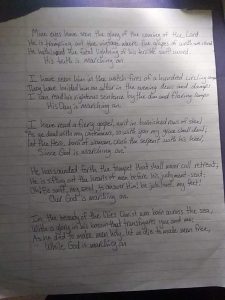 Mine eyes have seen the glory of the coming of the Lord
He is trampling out the vintage where the grapes of wrath are stored
He hath loosed the fateful lightning of his terrible swift sword
His truth is marching on
I have seen him in the watch fires of a hundred circling camps
They have builded him an altar in the evening dews and damps
I can read his righteous sentence by the dim and flaring lamps
His Day is marching on.
I have read a fiery gospel, writ in burnished rows of steel
"As ye deal with my contemners, so with you my grace shall deal;
Let the Hero, born of woman, crush the serpent with his heel,
Since God is marching on.
He has sounded forth the trumpet that shall never call retreat,
He is sifting out the hearts of men before his judgement-seat:
Oh! Be swift, my soul, to answer him! be jubilant, my feet!
Our God is marching on.
In the beauty of the lilies Christ was born across the sea,
With a glory in his bosom that transfigures you and me;
As he died to make men holy, let us die to make men free,
While God is marching on.